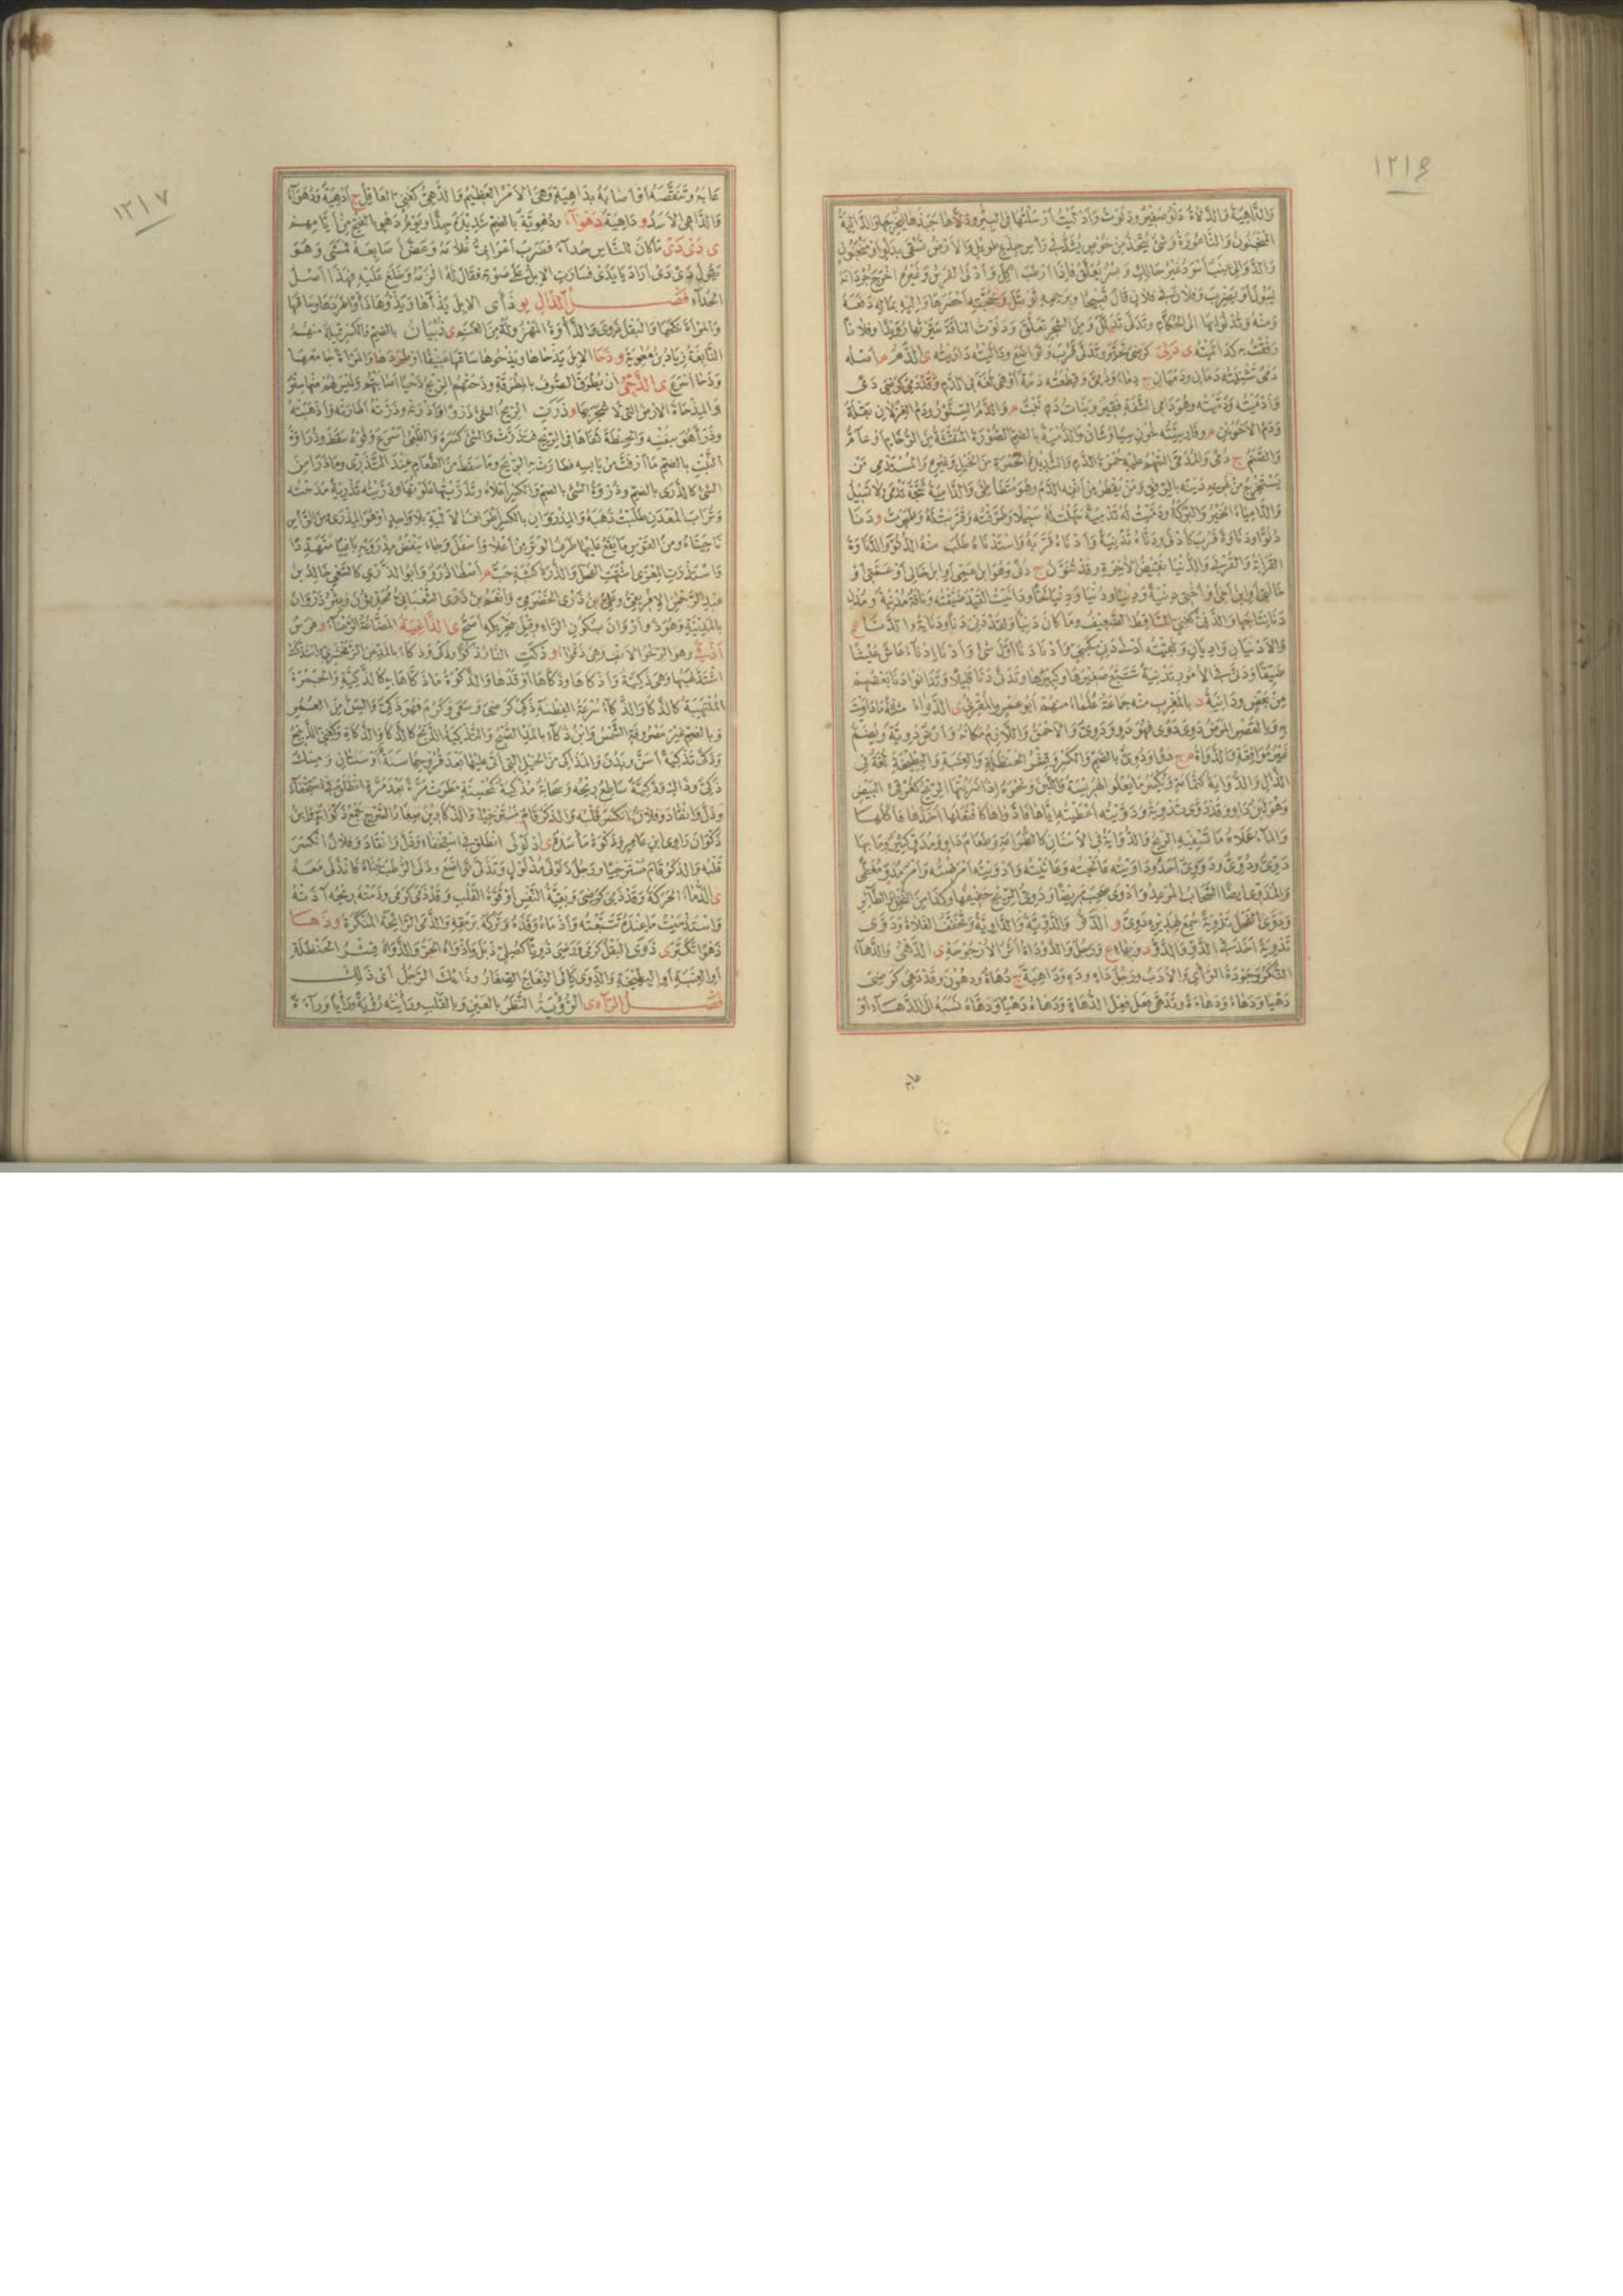 ١٢١٦
وَالدَّالِيَةُ وَالدَّلَاةُ دَلْوٌ صَغِيرٌ وَدَلَوْتُ وَأَدْلَيْتُ أَرْسَلْتُهَا فِي الْبِئْرِ وَدَلَاهَا جَبَذَهَا لِيُخْرِجَهَا وَالدَّالِيَةُ
الْمَنْجَنُونُ وَالنَّاعُورَةُ وَشَيْءٌ يُتَّخَذُ مِنْ خُوصٍ يُشَدُّ فِي رَأْسِ جِذْعٍ طَوِيلٍ وَالْأَرْضُ تُسْقَى بِدَلْوٍ أَوْ مَنْجَنُونٍ
وَالدَّوَالِي عِنَبٌ أَسْوَدُ غَيْرُ حَالِكٍ وَبُسْرٌ يُعَلَّقُ فَإِذَا أَرْطَبَ أُكِلَ وَأَدْلَى الْفَرَسُ وَغَيْرُهُ أَخْرَجَ جُرْدَانَهُ
لِيَبُولَ أَوْ يَضْرِبَ وَفُلَانٌ فِي فُلَانٍ قَالَ قَبِيحًا وَبِرَحِمِهِ تَوَسَّلَ وَبِحُجَّتِهِ أَحْضَرَهَا وَإِلَيْهِ بِمَالِهِ دَفَعَهُ
وَمِنْهُ وَتُدْلُوا بِهَا إِلَى الْحُكَّامِ وَتَدَلَّى تَدَلَّلَ وَمِنَ الشَّجَرِ تَعَلَّقَ وَدَلَوْتُ النَّاقَةَ سَيَّرْتُهَا رُوَيْدًا وَفُلَانًا
رَفَقْتُ بِهِ كَدَالَيْتُهُ ى دَلِيَ كَرَضِيَ تَحَيَّرَ وَتَدَلَّى قَرُبَ وَتَوَاضَعَ وَدَالَيْتُهُ دَارَيْتُهُ ى الدَّمُ م أَصْلُهُ
دَمَيٌ تَثْنِيَتُهُ دَمَانِ وَدَمَيَانِ ج دِمَاءٌ وَدُمِيٌّ وَقِطْعَتُهُ دَمَةٌ أَوْ هِيَ لُغَةٌ فِي الدَّمِ وَقَدْ دَمِيَ كَرَضِيَ دَمًى
وَأَدْمَيْتُهُ وَدَمَّيْتُهُ وَهُوَ دَامِي الشَّفَةِ فَقِيرٌ وَبَنَاتُ دَمٍ نَبْتٌ م وَالدَّمُ السِّنَّوْرُ وَدَمُ الْغِزْلَانِ بَقْلَةٌ
وَدَمُ الْأَخَوَيْنِ م وَالدُّمْيَةُ بِالضَّمِّ الصُّورَةُ الْمُنَقَّشَةُ مِنَ الرُّخَامِ أَوْ عَامٌّ
وَالصَّنَمُ ج دُمًى وَالْمُدَمَّى السَّهْمُ عَلَيْهِ حُمْرَةُ الدَّمِ وَالشَّدِيدُ الْحُمْرَةِ مِنَ الْخَيْلِ وَغَيْرِهِ وَالْمُسْتَدْمِي مَنْ
يَسْتَخْرِجُ مِنْ غَرِيمِهِ دَيْنَهُ بِالرِّفْقِ وَمَنْ يَقْطُرُ مِنْ أَنْفِهِ الدَّمُ وَهُوَ مُتَطَأْطِئٌ وَالدَّامِيَةُ شَجَّةٌ تَدْمَى وَلَا تَسِيلُ
وَالدَّامِيَاءُ الْخَيْرُ وَالْبَرَكَةُ وَدَمَّيْتُ لَهُ تَدْمِيَةً سَهَّلْتُ لَهُ سَبِيلًا وَطَرَّقْتُهُ وَقَرَّبْتُ لَهُ وَظَهَرْتُ و دَنَا
دُنُوًّا وَدَنَاوَةً قَرُبَ كَأَدْنَى وَدَنَّاهُ تَدْنِيَةً وَأَدْنَاهُ قَرَّبَهُ وَاسْتَدْنَاهُ طَلَبَ مِنْهُ الدُّنُوَّ وَالدَّنَاوَةُ
الْقَرَابَةُ وَالْقُرْبَى وَالدُّنْيَا نَقِيضُ الْآخِرَةِ وَقَدْ تُنَوَّنُ ج دُنًى وَهُوَ ابْنُ عَمِّي أَوِ ابْنُ خَالِي أَوْ عَمَّتِي أَوْ
خَالَتِي أَوِ ابْنُ أَخِي أَوْ أُخْتِي دِنْيَةً وَدِنْيًا وَدُنْيَا وَدِنْيَا لَحًّا وَدَانَيْتُ الْقَيْدَ ضَيَّقْتُهُ وَنَاقَةٌ مُدْنِيَةٌ وَمُدْنٍ
دَنَا نِتَاجُهَا وَالدَّنِيُّ كَغَنِيٍّ السَّاقِطُ الضَّعِيفُ وَمَا كَانَ دَنِيًّا وَلَقَدْ دَنِيَ دَنًا وَدَنَايَةً وَالدَّنَا ع
وَالْأَدْنَيَانِ وَادِيَانِ وَلَقِيتُهُ أَدْنَى دَنِيٍّ كَغَنِيٍّ وَأَدْنَى دَنًا أَوَّلَ شَيْءٍ وَأَدْنَى إِدْنَاءً عَاشَ عَيْشًا
ضَيِّقًا وَدَنَّى فِي الْأُمُورِ تَدْنِيَةً تَتَبَّعَ صَغِيرَهَا وَكَبِيرَهَا وَتَدَنَّى دَنَا قَلِيلًا وَتَدَانَوْا دَنَا بَعْضُهُمْ
مِنْ بَعْضٍ وَدَانِيَةُ د بِالْمَغْرِبِ مِنْهُ جَمَاعَةٌ عُلَمَاءُ مِنْهُمْ أَبُو عَمْرٍو الْمُقْرِئُ ى الدَّوَاءُ مُثَلَّثَةً مَا دَاوَيْتَ
بِهِ وَبِالْقَصْرِ الْمَرَضُ دَوِيَ دَوًى فَهُوَ دَوٍ وَدَوًى وَالْأَحْمَقُ وَاللَّازِمُ مَكَانَهُ وَأَرْضٌ دَوِيَةٌ وَيُضَمُّ
غَيْرُ مُوَافِقَةٍ وَالدَّوَاةُ م ج دَوًى وَدُوِيٌّ بِالضَّمِّ وَالْكَسْرِ وَقِشْرُ الْحَنْظَلَةِ وَالْعِنَبَةِ وَالْبِطِّيخَةِ لُغَةٌ فِي
الذَّالِ وَالدُّوَايَةُ كَثُمَامَةٍ وَيُكْسَرُ مَا يَعْلُو الْهَرِيسَةَ وَاللَّبَنَ وَنَحْوَهُ إِذَا ضَرَبَتْهَا الرِّيحُ كَغِرْقِئِ الْبَيْضِ
وَهُوَ لَبَنٌ دَاوٍ وَقَدْ دَوَّى تَدْوِيَةً وَدَوَّيْتُهُ أَعْطَيْتُهُ إِيَّاهَا فَادَّوَاهَا كَافْتَعَلَهَا أَخَذَهَا فَأَكَلَهَا
وَالْمَاءُ عَلَاهُ مَا تَسْفِيهِ الرِّيحُ وَالدُّوَايَةُ فِي الْأَسْنَانِ كَالطُّرَامَةِ وَطَعَامٌ دَاوٍ وَمُدَوٍّ كَثِيرٌ وَمَا بِهَا
دَوِّيٌّ وَدُوِّيٌّ وَدَوَوِيٌّ أَحَدٌ وَدَاوَيْتُهُ عَالَجْتُهُ وَعَانَيْتُهُ وَأَدْوَيْتُهُ أَمْرَضْتُهُ وَأَمْرٌ مُدَوٍّ مُغَطًّى
وَالْمُدَوِّي أَيْضًا السَّحَابُ الْمُرْعِدُ وَأَدْوَى صَحِبَ مَرِيضًا وَدَوِيُّ الرِّيحِ حَفِيفُهَا وَكَذَا مِنَ النَّحْلِ وَالطَّائِرِ
وَدَوَّى الْفَحْلُ تَدْوِيَةً سُمِعَ لِهَدِيرِهِ دَوِيٌّ و الدَّوُّ وَالدَّوِّيَّةُ وَالدَّاوِيَّةُ وَيُخَفَّفُ الْفَلَاةُ وَدَوَّى
تَدْوِيَةً أَخَذَ فِي الدَّوِّ وَالدَّوُّ د وَبِهَاءٍ ع وَالدَّوْدَاةُ أَثَرُ الْأُرْجُوحَةِ ى الدَّهْيُ وَالدَّهَاءُ
النُّكْرُ وَجَوْدَةُ الرَّأْيِ وَالْأَدَبُ وَرَجُلٌ دَاهٍ وَدَهٍ وَدَاهِيَةٌ ج دُهَاةٌ وَدَهُونَ وَقَدْ دَهِيَ كَرَضِيَ
دَهْيًا وَدَهَاءً وَدَهَاءَةً وَتَدَهَّى فَعَلَ فِعْلَ الدُّهَاةِ وَدَهَاهُ دَهْيًا وَدَهَّاهُ نَسَبَهُ إِلَى الدَّهَاءِ أَوْ
عابه
١٢١٧
عَابَهُ وَتَنَقَّصَهُ أَوْ أَصَابَهُ بِدَاهِيَةٍ وَهِيَ الْأَمْرُ الْعَظِيمُ وَالدَّهِيُّ كَغَنِيٍّ الْعَاقِلُ ج أَدْهِيَةٌ وَدُهَوَاءُ
وَالدَّاهِي الْأَسَدُ و دَاهِيَةٌ دَهْوَاءُ وَدُهْوِيَّةٌ بِالضَّمِّ شَدِيدَةٌ جِدًّا وَيَوْمُ دَهْوٍ بِالْفَتْحِ مِنْ أَيَّامِهِمْ
ى دَيْ دَيْ مَا كَانَ لِلنَّاسِ حُدَاءٌ فَضَرَبَ أَعْرَابِيٌّ غُلَامَهُ وَعَضَّ أَصَابِعَهُ فَمَشَى وَهُوَ
يَقُولُ دَيْ دَيْ أَرَادَ يَا يَدَيَّ فَسَارَتِ الْإِبِلُ عَلَى صَوْتِهِ فَقَالَ لَهُ الْزَمْهُ وَخَلَعَ عَلَيْهِ فَهَذَا أَصْلُ
الْحُدَاءِ فَصْلُ الذَّالِ يو ذَأَى الْإِبِلَ يَذْآهَا وَيَذْؤُهَا ذَأْوًا طَرَدَهَا وَسَاقَهَا
وَالْمَرْأَةَ نَكَحَهَا وَالْبَقْلُ ذَوَى وَالذَّأْوَةُ الْمَهْزُولَةُ مِنَ الْغَنَمِ ى ذُبْيَانُ بِالضَّمِّ وَالْكَسْرِ قَبِيلَةٌ مِنْهُمُ
النَّابِغَةُ زِيَادُ بْنُ مُعَاوِيَةَ و ذَحَا الْإِبِلَ يَذْحَاهَا وَيَذْحُوهَا سَاقَهَا عَنِيفًا أَوْ طَرَدَهَا وَالْمَرْأَةَ جَامَعَهَا
وَذَحَا أَسْرَعَ ى الذَّحْيُ أَنْ يُطْرَقَ الصُّوفُ بِالْمِطْرَقَةِ وَذَحَتْهُمُ الرِّيحُ ذَحْيًا أَصَابَتْهُمْ وَلَيْسَ لَهُمْ مِنْهَا سِتْرٌ
وَالْمِذْحَاةُ الْأَرْضُ الَّتِي لَا شَجَرَ بِهَا و ذَرَتِ الرِّيحُ الشَّيْءَ ذَرْوًا وَأَذْرَتْهُ وَذَرَّتْهُ أَطَارَتْهُ وَأَذْهَبَتْهُ
وَذَرَا هُوَ بِنَفْسِهِ وَالْحِنْطَةَ نَقَّاهَا فِي الرِّيحِ فَتَذَرَّتْ وَالشَّيْءَ كَسَرَهُ وَالظَّبْيُ أَسْرَعَ وَفُوهُ سَقَطَ وَذُرَاوَةُ
النَّبْتِ بِالضَّمِّ مَا ارْفَتَّ مِنْ يَابِسِهِ فَطَارَتْ بِهِ الرِّيحُ وَمَا سَقَطَ مِنَ الطَّعَامِ عِنْدَ التَّذَرِّي وَمَا ذَرَا مِنَ
الشَّيْءِ كَالذَّرَى بِالضَّمِّ وَذُرْوَةُ الشَّيْءِ بِالضَّمِّ وَالْكَسْرِ أَعْلَاهُ وَتَذَرَّيْتُهَا عَلَوْتُهَا وَذَرَّيْتُهُ تَذْرِيَةً مَدَحْتُهُ
وَتُرَابَ الْمَعْدِنِ طَلَبْتُ ذَهَبَهُ وَالْمِذْرَوَانِ بِالْكَسْرِ أَطْرَافُ الْأَلْيَةِ بِلَا وَاحِدٍ أَوْ هُوَ الْمِذْرَى وَمِنَ الرَّأْسِ
نَاحِيَتَاهُ وَمِنَ الْقَوْسِ مَا يَقَعُ عَلَيْهَا طَرَفُ الْوَتَرِ مِنْ أَعْلَى وَأَسْفَلَ وَجَاءَ يَنْفُضُ مِذْرَوَيْهِ بَاغِيًا مُتَهَدِّدًا
وَاسْتَذْرَتِ الْمِعْزَى اشْتَهَتِ الْفَحْلَ وَالذُّرَةُ كَثُبَةٍ حَبٌّ م أَصْلُهَا ذُرَوٌ وَأَبُو الذَّرِّيِّ كَالسَّخِيِّ خَالِدُ بْنُ
عَبْدِ الرَّحْمَنِ الْإِفْرِيقِيُّ وَعَلِيُّ بْنُ ذَرِيٍّ الْحَضْرَمِيُّ وَأَنْعَمُ بْنُ ذَرِيٍّ الشَّعْبَانِيُّ مُحَدِّثُونَ وَبِئْرُ ذَرْوَانَ
بِالْمَدِينَةِ وَهُوَ ذُو أَرْوَانَ بِسُكُونِ الرَّاءِ وَقِيلَ بِتَحْرِيكِهِ أَصَحُّ ى الذَّاغِيَةُ الْمَضَّاغَةُ الرَّعْنَاءُ و فَرَسٌ
أَذْقَى وَهُوَ الرِّخْوُ الْأَنْفِ وَهِيَ ذَقْوَاءُ و ذَكَتِ النَّارُ ذُكُوًّا وَذَكًا وَذَكَاءً بِالْمَدِّ عَنِ الزَّمَخْشَرِيِّ وَاسْتَذْكَتْ
اشْتَدَّ لَهَبُهَا وَهِيَ ذَكِيَّةٌ وَأَذْكَاهَا وَذَكَّاهَا أَوْقَدَهَا وَالذُّكْوَةُ مَا ذَكَّاهَا بِهِ كَالذُّكْيَةِ وَالْجَمْرَةُ
الْمُلْتَهِبَةُ كَالذَّكَا وَالذَّكَاءُ سُرْعَةُ الْفِطْنَةِ ذَكِيَ كَرَضِيَ وَسَعَى وَكَرُمَ فَهُوَ ذَكِيٌّ وَالسِّنُّ مِنَ الْعُمُرِ
وَبِالضَّمِّ غَيْرَ مَصْرُوفَةٍ الشَّمْسُ وَابْنُ ذُكَاءَ بِالْمَدِّ الصُّبْحُ وَالتَّذْكِيَةُ الذَّبْحُ كَالذَّكَا وَالذَّكَاةِ وَكَغَنِيٍّ الذَّبِيحُ
وَذَكَّى تَذْكِيَةً أَسَنَّ وَبَدُنَ وَالْمَذَاكِي مِنَ الْخَيْلِ الَّتِي أَتَى عَلَيْهَا بَعْدَ قُرُوحِهَا سَنَةٌ أَوْ سَنَتَانِ وَمِسْكٌ
ذَكِيٌّ وَذَاكٍ وَذَكِيَّةٌ سَاطِعٌ رِيحُهُ وَسَحَابَةٌ مُذَكِّيَةٌ كَمُحْسِنَةٍ مَطَرَتْ مَرَّةً بَعْدَ مَرَّةٍ
ذَكْوَانَ رَاوِي ابْنِ عَامِرٍ وَذَكْوَةُ مَأْسَدَةٌ ى اذْلَوْلَى انْطَلَقَ فِي اسْتِخْفَاءٍ وَذَلَّ وَانْقَادَ وَفُلَانٌ انْكَسَرَ
قَلْبُهُ وَالذَّكَرُ قَامَ مُسْتَرْخِيًا وَرَجُلٌ ذَلَوْلَى مُذْلَوْلٍ وَتَذَلَّى تَوَاضَعَ وَذَلَى الرُّطَبَ جَنَاهُ فَانْذَلَى مَعَهُ
ى الذَّمَاءُ الْحَرَكَةُ وَقَدْ ذَمِيَ كَرَضِيَ وَبَقِيَّةُ النَّفْسِ أَوْ قُوَّةُ الْقَلْبِ وَقَدْ ذَمَى كَرَمَى وَذَمَتْهُ رِيحُهُ آذَتْهُ
وَاسْتَذْمَيْتُ مَا عِنْدَهُ تَتَبَّعْتُهُ وَأَذْمَاهُ وَقَذَهُ وَتَرَكَهُ بِرَمَقِهِ وَالذَّمَى الرَّائِحَةُ الْمُنْكَرَةُ و ذَهَا
ذَهْوًا تَكَبَّرَ ى ذَوَى الْبَقْلُ كَرَمَى وَرَضِيَ ذُوِيًّا كَصُلِيٍّ ذَبَلَ وَأَذْوَاهُ الْحَرُّ وَالذَّوَاةُ قِشْرُ الْحَنْظَلَةِ
أَوِ الْعِنَبَةِ أَوِ الْبِطِّيخَةِ وَالذِّوَى كَإِلَى النِّعَاجُ الصِّغَارُ وَذَا بُكَ الرَّجُلُ أَيْ ذَلِكَ
فَصْلُ الرَّاءِ ى الرُّؤْيَةُ النَّظَرُ بِالْعَيْنِ وَبِالْقَلْبِ وَرَأَيْتُهُ رُؤْيَةً وَرَأْيًا وَرَاءَةً